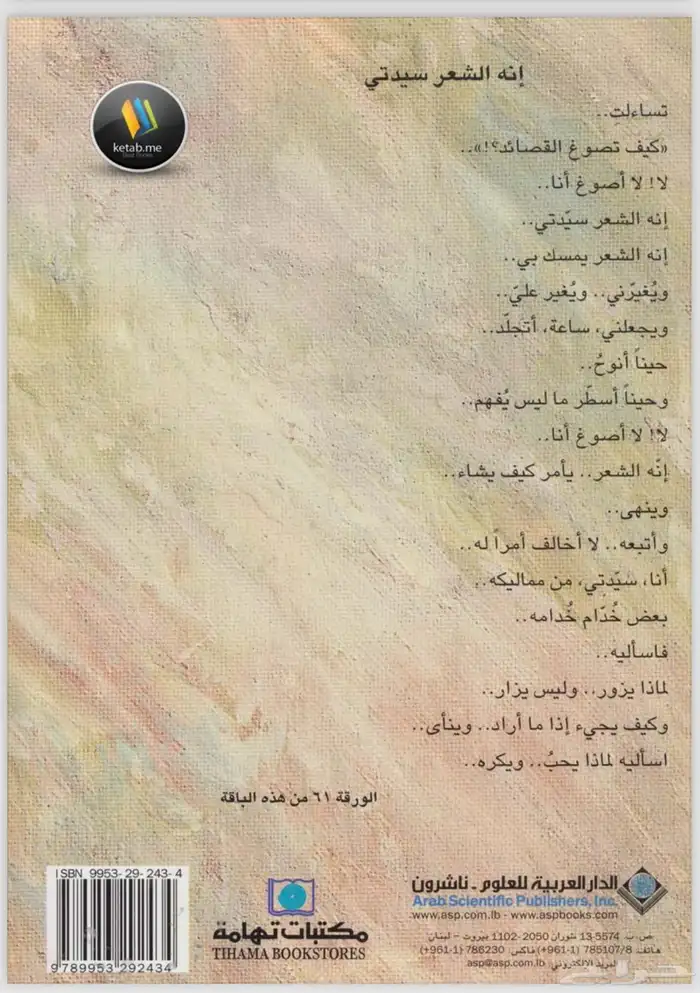 إنه الشعر سيدتي
ketab.me
تساءلتِ..
«كيف تصوغ القصائد؟!»..
لا! لا أصوغ أنا..
إنه الشعر سيّدتي..
إنه الشعر يمسك بي..
ويُغيّرني.. ويُغير عليّ..
ويجعلني، ساعة، أتجلّد..
حيناً أنوحُ..
وحيناً أسطّر ما ليس يُفهم..
لا! لا أصوغ أنا..
إنّه الشعر.. يأمر كيف يشاء..
وينهى..
وأتبعه.. لا أخالف أمراً له..
أنا، سيّدتي، من مماليكه..
بعض خُدّام خُدامه..
فاسأليه..
لماذا يزور.. وليس يزار..
وكيف يجيء إذا ما أراد.. وينأى..
اسأليه لماذا يحبُ.. ويكره..
الورقة ٦١ من هذه الباقة
ISBN 9953-29-243-4
9789953292434
مكتبات تهامة
TIHAMA BOOKSTORES
الدار العربية للعلوم ـ ناشرون
Arab Scientific Publishers, Inc.
www.asp.com.lb - www.aspbooks.com
ص. ب. 5574-13 شوران 2050-1102 بيروت - لبنان
هاتف: 785107/8 (1-961+) فاكس: 786230 (1-961+)
البريد الالكتروني: asp@asp.com.lb
حراج